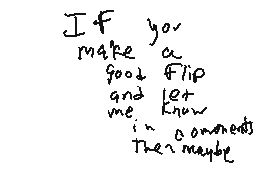 IF you
make a
good Flip
and let
me know
in comments
then maybe